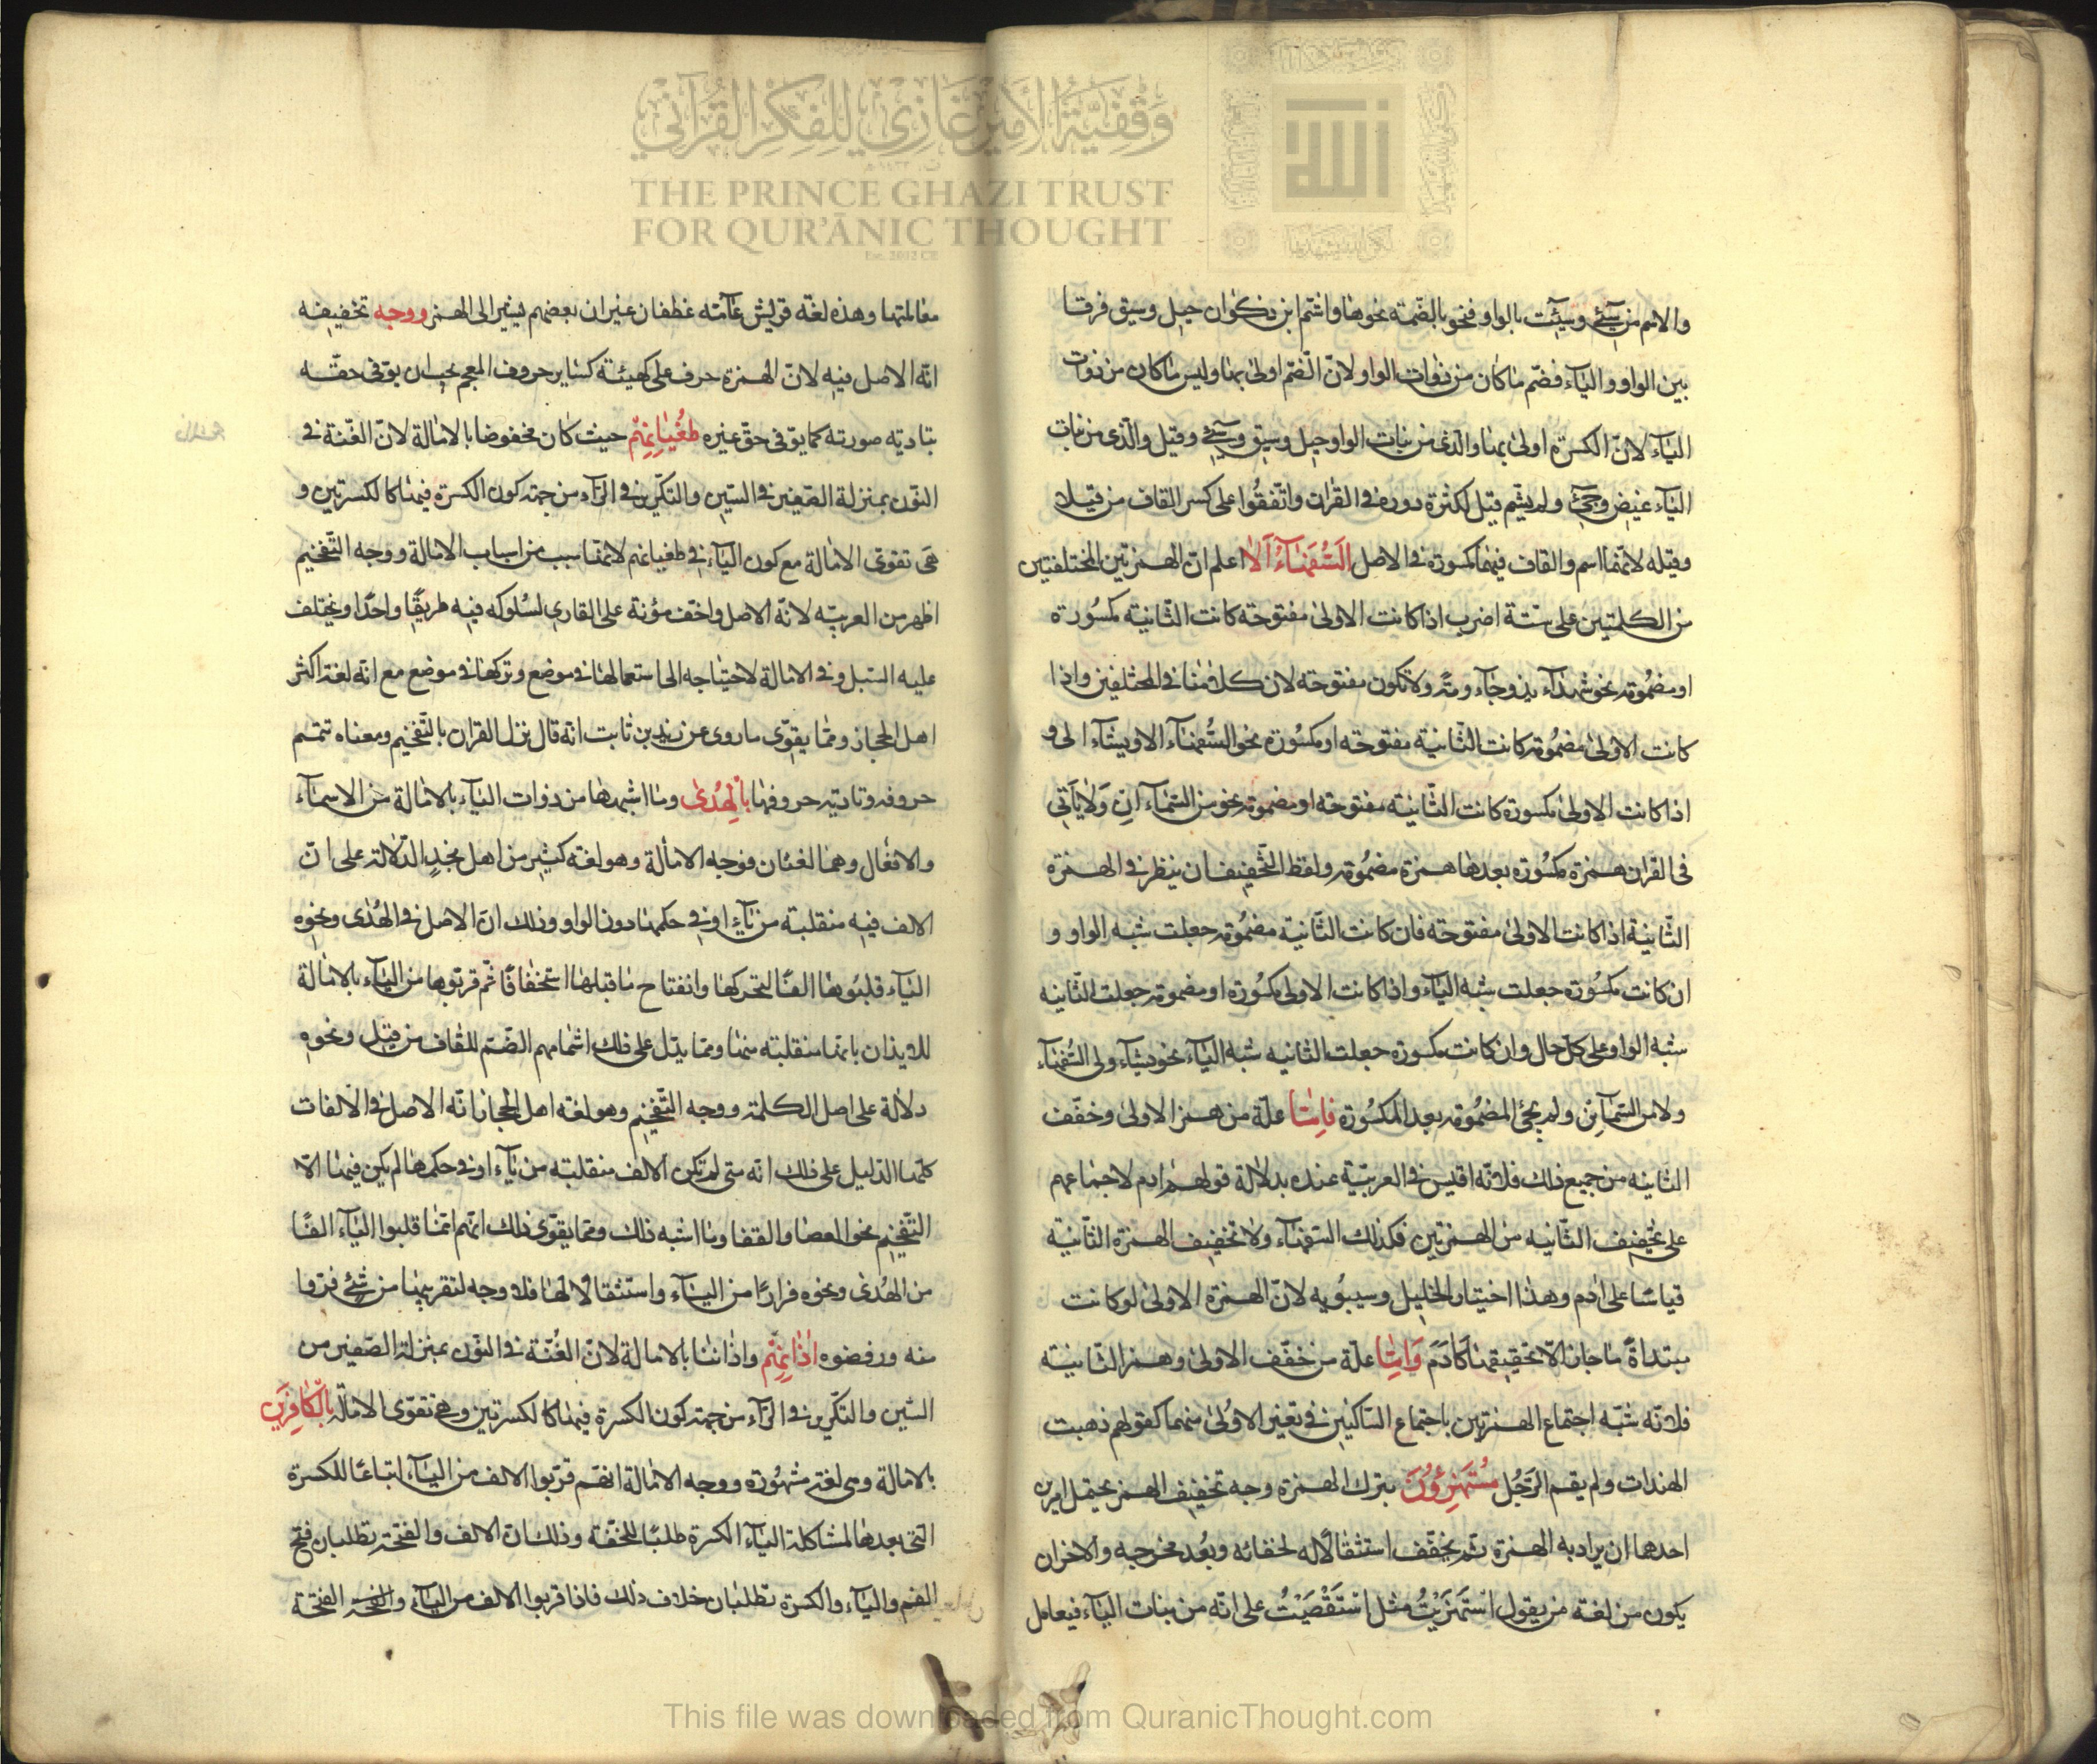 والاسم من سيئ وسيئت بالواو فنحو بالضمة نحوها واشتم ابن ذكوان حيل وسيق فرقا
بين الواو والياء فضم ما كان من ذوات الواو لان الضم اولى بها وليس ما كان من ذوات
الياء لان الكسرة اولى بها والذى من بنات الواو حيل وسيق وسيئ وقيل والذى من بنات
الياء غيض وجيئ ولم يشم قيل لكثرة دوره فى القران واتفقوا على كسر القاف من قيلا
وقيله لانهما اسم والقاف فيهما مكسورة فى الاصل السُّفَهَاءُ اَلَا اعلم ان الهمزتين المختلفتين
من الكلمتين على ستة اضرب اذا كانت الاولى مفتوحة كانت الثانية مكسورة
او مضمومة نحو شهداء اذ وجاء امة ولا تكون مفتوحة لان كلامنا فى المختلفين واذا
كانت الاولى مضمومة كانت الثانية مفتوحة او مكسورة نحو السفهاء الا ويشاء الى و
اذا كانت الاولى مكسورة كانت الثانية مفتوحة او مضمومة نحو من السماء ان ولا ياتى
فى القران همزة مكسورة بعدها همزة مضمومة ولفظ التخفيف ان ينظر فى الهمزة
الثانية اذا كانت الاولى مفتوحة فان كانت الثانية مضمومة جعلت شبه الواو و
ان كانت مكسورة جعلت شبه الياء واذا كانت الاولى مكسورة او مضمومة جعلت الثانيه
شبه الواو على كل حال وان كانت مكسورة جعلت الثانيه شبه الياء نحو يشاء ولى السفهاء
ولا من السماء ان ولم يجئ المضمومة بعد المكسورة فامّا علة من همز الاولى وخفف
الثانيه من جميع ذلك فلانه اقيس فى العربية عنده بدلالة قولهم ادم لاجتماعهم
على تخفيف الثانيه من الهمزتين فكذلك السفهاء ولا تخفيف الهمزة الثانية
قياسًا على ادم وهذا اختيار الخليل وسيبويه لان الهمزة الاولى لو كانت
مبتداةً ما جاز الا تحقيقها كادم وَامّا علة من خفف الاولى وهمز الثانية
فلانه شبّه اجتماع الهمزتين باجتماع الساكنين فى تغير الاولى منهما كقولهم ذهبت
الهندات ولم يقم الرجل مُسْتَهْزِؤُنَ بترك الهمزة وجه تخفيف الهمز يحتمل امرين
احدهما ان يراد به الهمزة ثم يخفف استثقالا له لخفائه وبُعد مخرجه والاخران
يكون من لغة من يقول استَهزَيْتُ مثل اسْتَقْصَيْتُ على انه من بنات الياء فيعامل
معاملتها وهذه لغة قريش عامّة غطفان غير ان بعضهم يشير الى الهمز ووجه تخفيفه
انّه الاصل فيه لان الهمزة حرف على كهيئة كساير حروف المعجم يجب ان يوفى حقه
بتاديته صورته كما يوفى حق غيره طغيانهم حيث كان مخفوضا بالامالة لان الغنة فى
النون بمنزلة الصفير فى السين والتكرير فى الراء من جهة كون الكسرة فيها كالكسرتين و
هى تقوى الامالة مع كون الياء فى طغيانهم لانها سبب من اسباب الامالة ووجه التفخيم
اظهر من العربيه لانه الاصل واخف مؤنة على القارى لسلوكه فيه طريقًا واحدًا ويختلف
عليه السبل وفى الامالة لاحتياجه الى استعمالها فى موضع وتركها فى موضع مع انه لغة اكثر
اهل الحجاز ومما يقوّى ما روى عن زيد بن ثابت انه قال نزل القران بالتفخيم ومعناه تتميم
حروفه وتادية حروفها بالهُدى وما اشبهها من ذوات الياء بالامالة من الاسماء
والافعال وهما لغتان فوجه الامالة وهو لغة كثير من اهل نجدٍ الدلالة على انّ
الالف فيه منقلبة من ياءٍ او فى حكمها دون الواو وذلك ان الاصل فى الهُدى ونحوه
الياء قلبُوها الفًا لتحركها وانفتاح ما قبلها استخفافًا ثم قربوها من الياء بالامالة
للايذان بانها منقلبة منها ومما يدل على ذلك اشمامهم الضم للقاف من قيل ونحوه
دلالة على اصل الكلمة ووجه التفخيم وهو لغة اهل الحجاز انه الاصل فى الالفات
كلها الدليل على ذلك انه متى لم تكن الالف منقلبة من ياء او فى حكمها لم يكن فيها الا
التفخيم نحو العصا والقفا وما اشبه ذلك ومما يقوّى ذلك انهم انما قلبوا الياء الفًا
من الهُدى ونحوه فرارًا من الياء واستثقالًا لها فلا وجه لتقريبها من شئ فروا
منه ورفضوه اٰذانِهِم واذاننا بالامالة لان الغُنّة فى النون بمنزلة الصفير من
السين والتكرير فى الراء من جهة كون الكسرة فيها كالكسرتين وهى تقوّى الامالة بالكافِرِينَ
بالامالة وهى لغة مشهورة ووجه الامالة انهم قربوا الالف من الياء اتباعًا للكسرة
التى بعدها لمشاكلة الياء الكسرة طلبًا للخفة وذلك ان الالف والفتحة تطلبان فتح
الفم والياء والكسرة تطلبان خلاف ذلك فاذا قربوا الالف من الياء والفتحة
وقفية الأمير غازي للفكر القرآني
THE PRINCE GHAZI TRUST
FOR QUR'ĀNIC THOUGHT
Est. 2012 CE
الله
This file was downloaded from QuranicThought.com